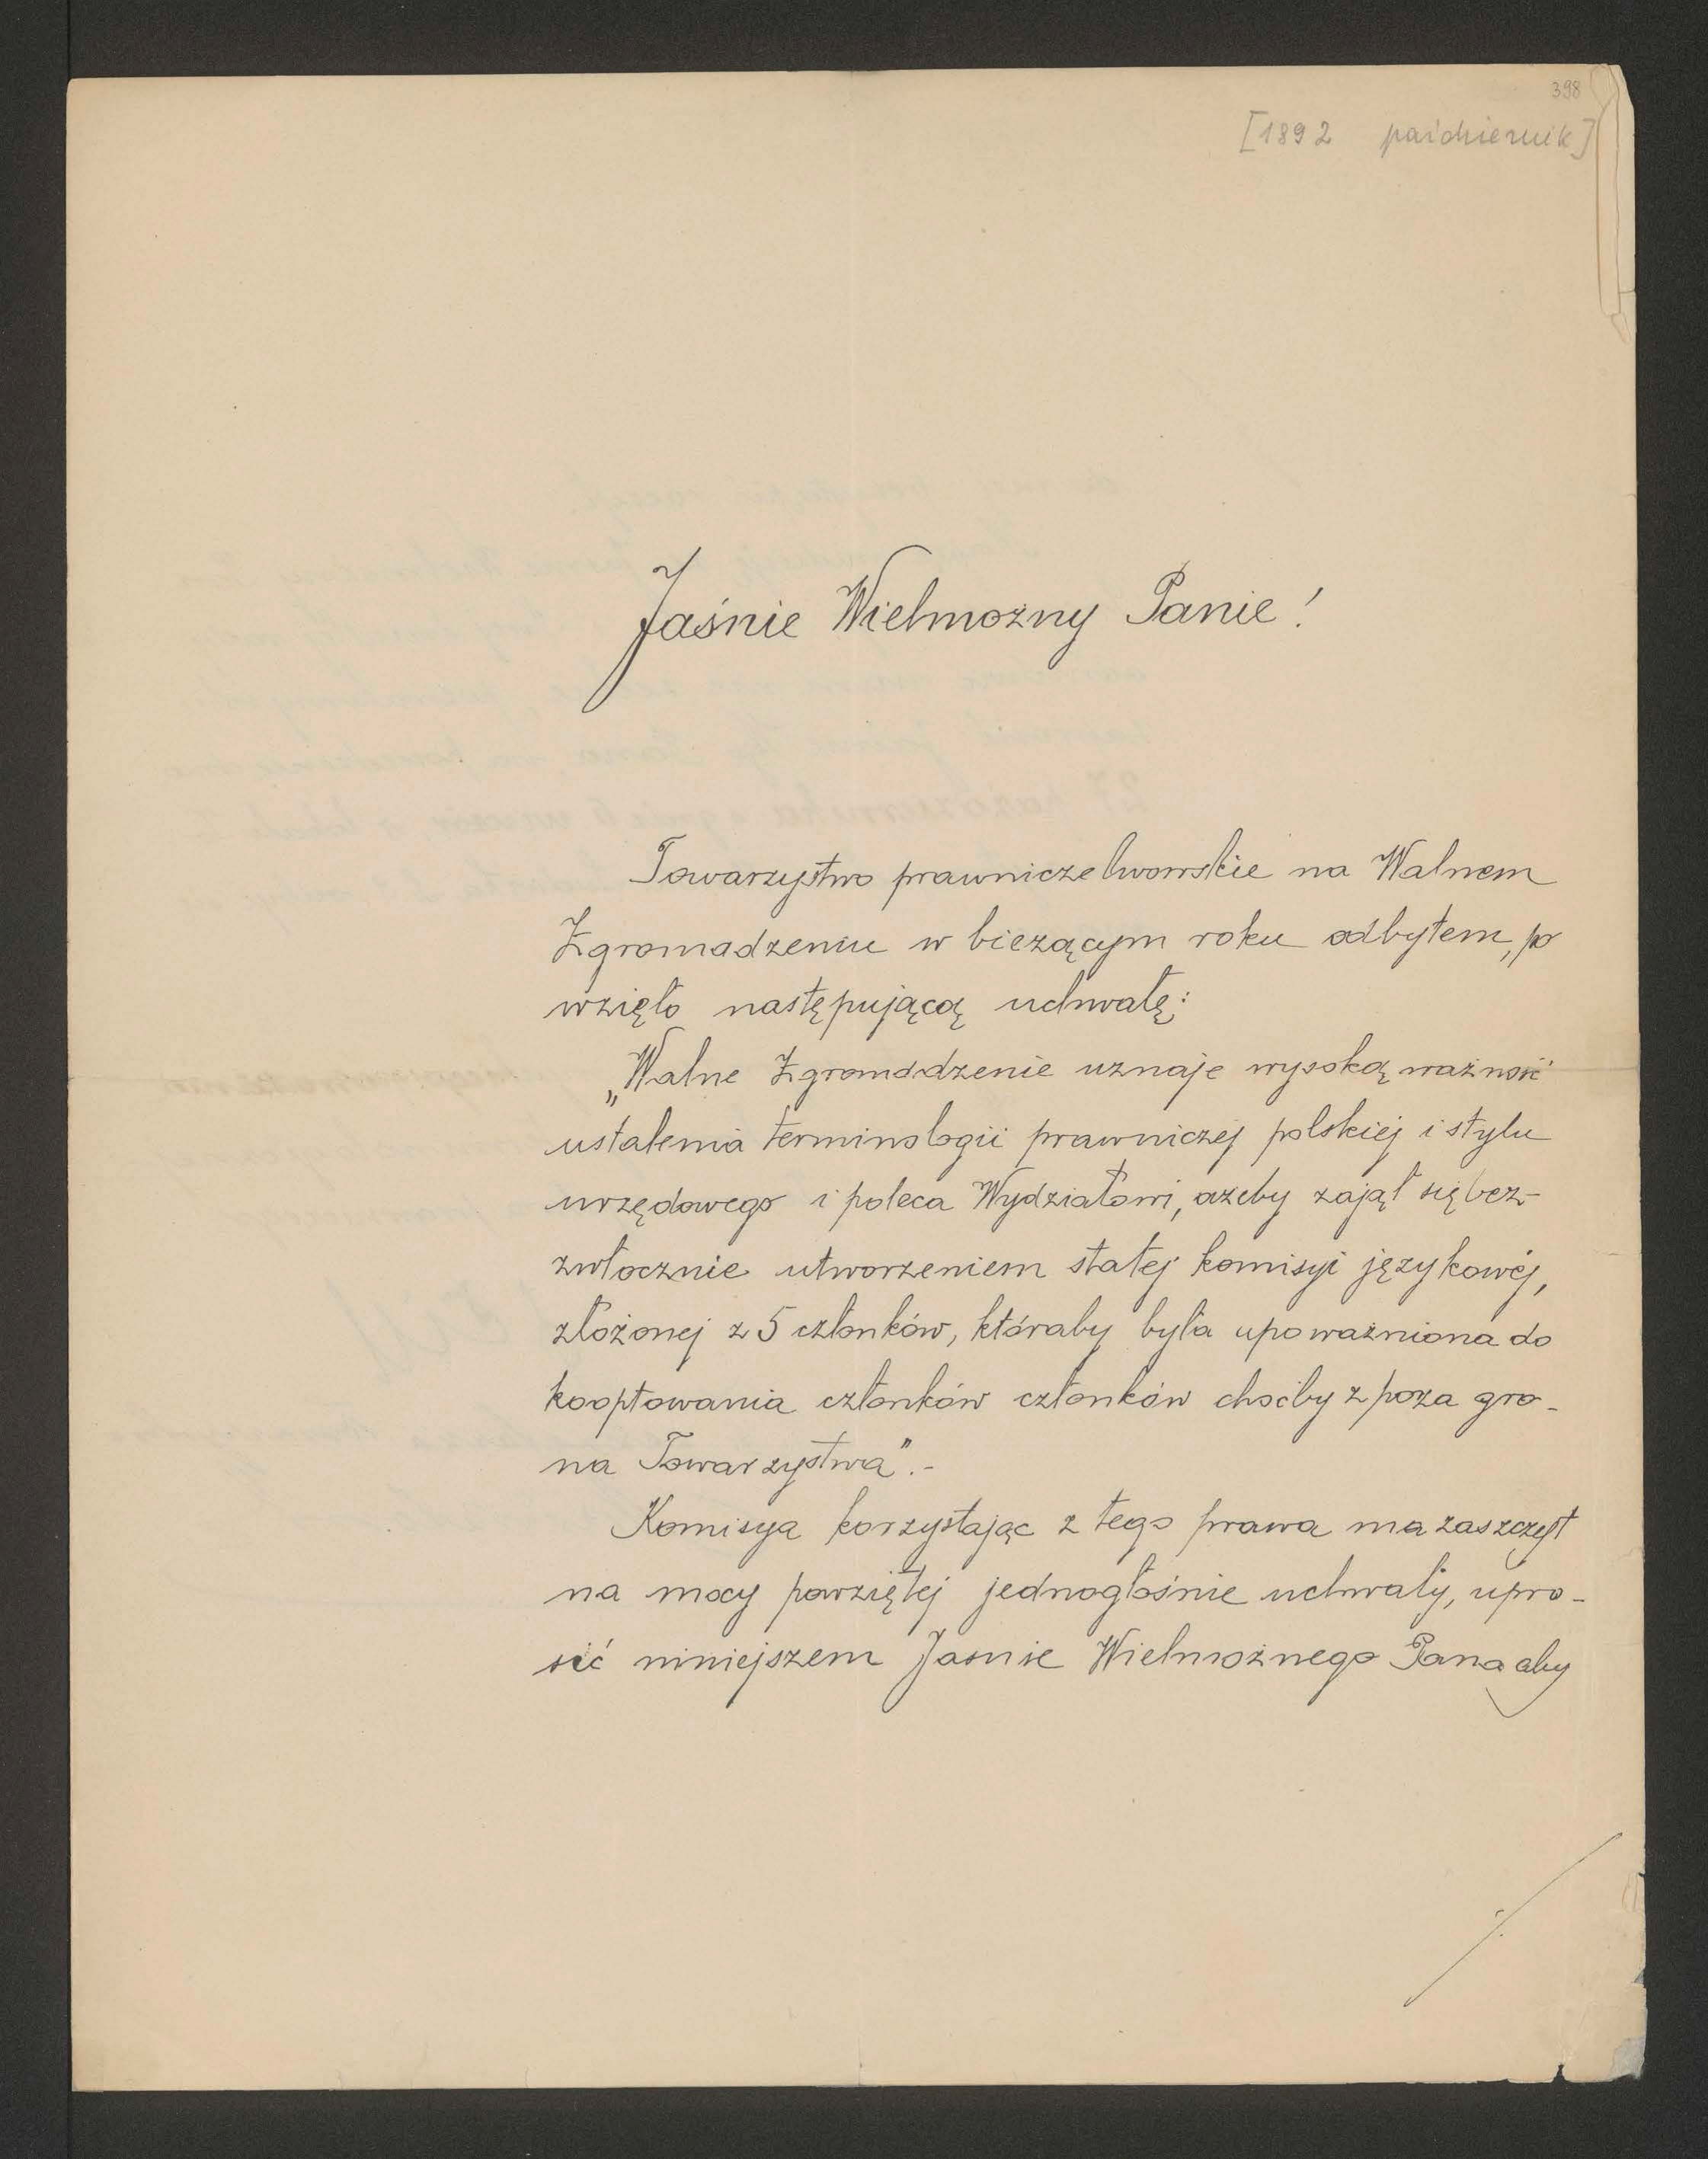 398
[1892 październik]
Jaśnie Wielmożny Panie!
Towarzystwo prawnicze lwowskie na Walnem
Zgromadzeniu w bieżącym roku odbytem, po
wzięło następującą uchwałę:
„Walne Zgromadzenie uznaje wysoką ważność
ustalenia terminologii prawniczej polskiej i stylu
urzędowego i poleca Wydziałowi, ażeby zajął się bez-
zwłocznie utworzeniem stałej komisyi językowéj,
złożonej z 5 członków, któraby była upoważniona do
kooptowania członków członków choćby z poza gro-
na Towarzystwa".-
Komisya korzystając z tego prawa ma zaszczyt
na mocy powziętej jednogłośnie uchwały, upro-
sić niniejszem Jasnie Wielmożnego Pana aby